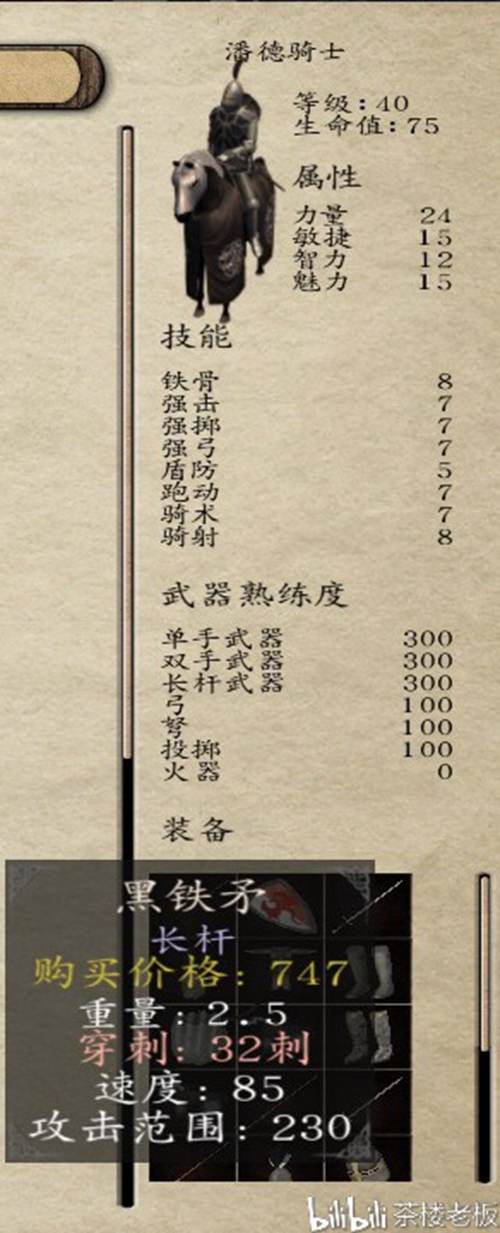 潘德骑士
等级：40
生命值：75
属性
力量 24
敏捷 15
智力 12
魅力 15
技能
铁骨 8
强击 7
强掷 7
强弓 7
盾防 5
跑动 7
骑术 7
骑射 8
武器熟练度
单手武器 300
双手武器 300
长杆武器 300
弓 100
弩 100
投掷 100
火器 0
装备
黑铁矛
长杆
购买价格：747
重量：2.5
穿刺：32刺
速度：85
攻击范围：230
bilibili 茶楼老板